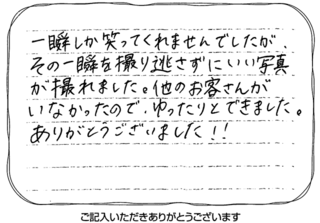 一瞬しか笑ってくれませんでしたが、
その一瞬を撮り逃さずにいい写真
が撮れました。他のお客さんが
いなかったので、ゆったりとできました。
ありがとうございました!!
ご記入いただきありがとうございます